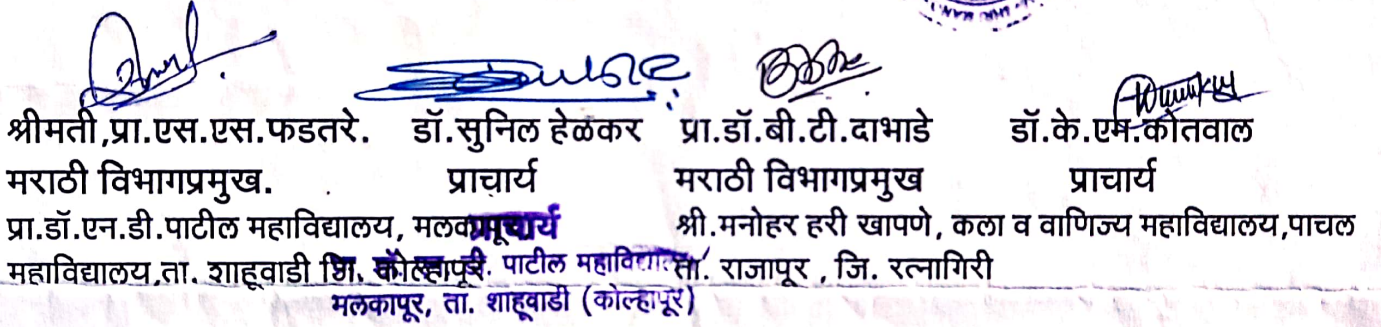 श्रीमती,प्रा.एस.एस.फडतरे. डॉ.सुनिल हेळकर प्रा.डॉ.बी.टी.दाभाडे डॉ.के.एम.कोतवाल
मराठी विभागप्रमुख. प्राचार्य मराठी विभागप्रमुख प्राचार्य
प्रा.डॉ.एन.डी.पाटील महाविद्यालय, प्राचार्य श्री.मनोहर हरी खापणे, कला व वाणिज्य महाविद्यालय,पाचल
महाविद्यालय,ता. शाहूवाडी जि. कोल्हापूर पाटील ता. राजापूर , जि. रत्नागिरी
मलकापूर, ता. शाहूवाडी (कोल्हापूर)